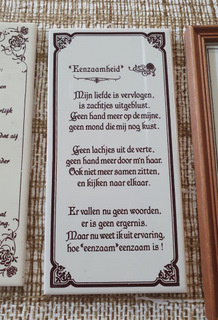 "Eenzaamheid"
Mijn liefde is vervlogen,
is zachtjes uitgeblust.
Geen hand meer op de mijne,
geen mond die mij nog kust.
Geen lachjes uit de verte,
geen hand meer door m'n haar.
Ook niet meer samen zitten,
en kijken naar elkaar.
Er vallen nu geen woorden,
er is geen ergernis.
Maar nu weet ik uit ervaring,
hoe "eenzaam" eenzaam is !